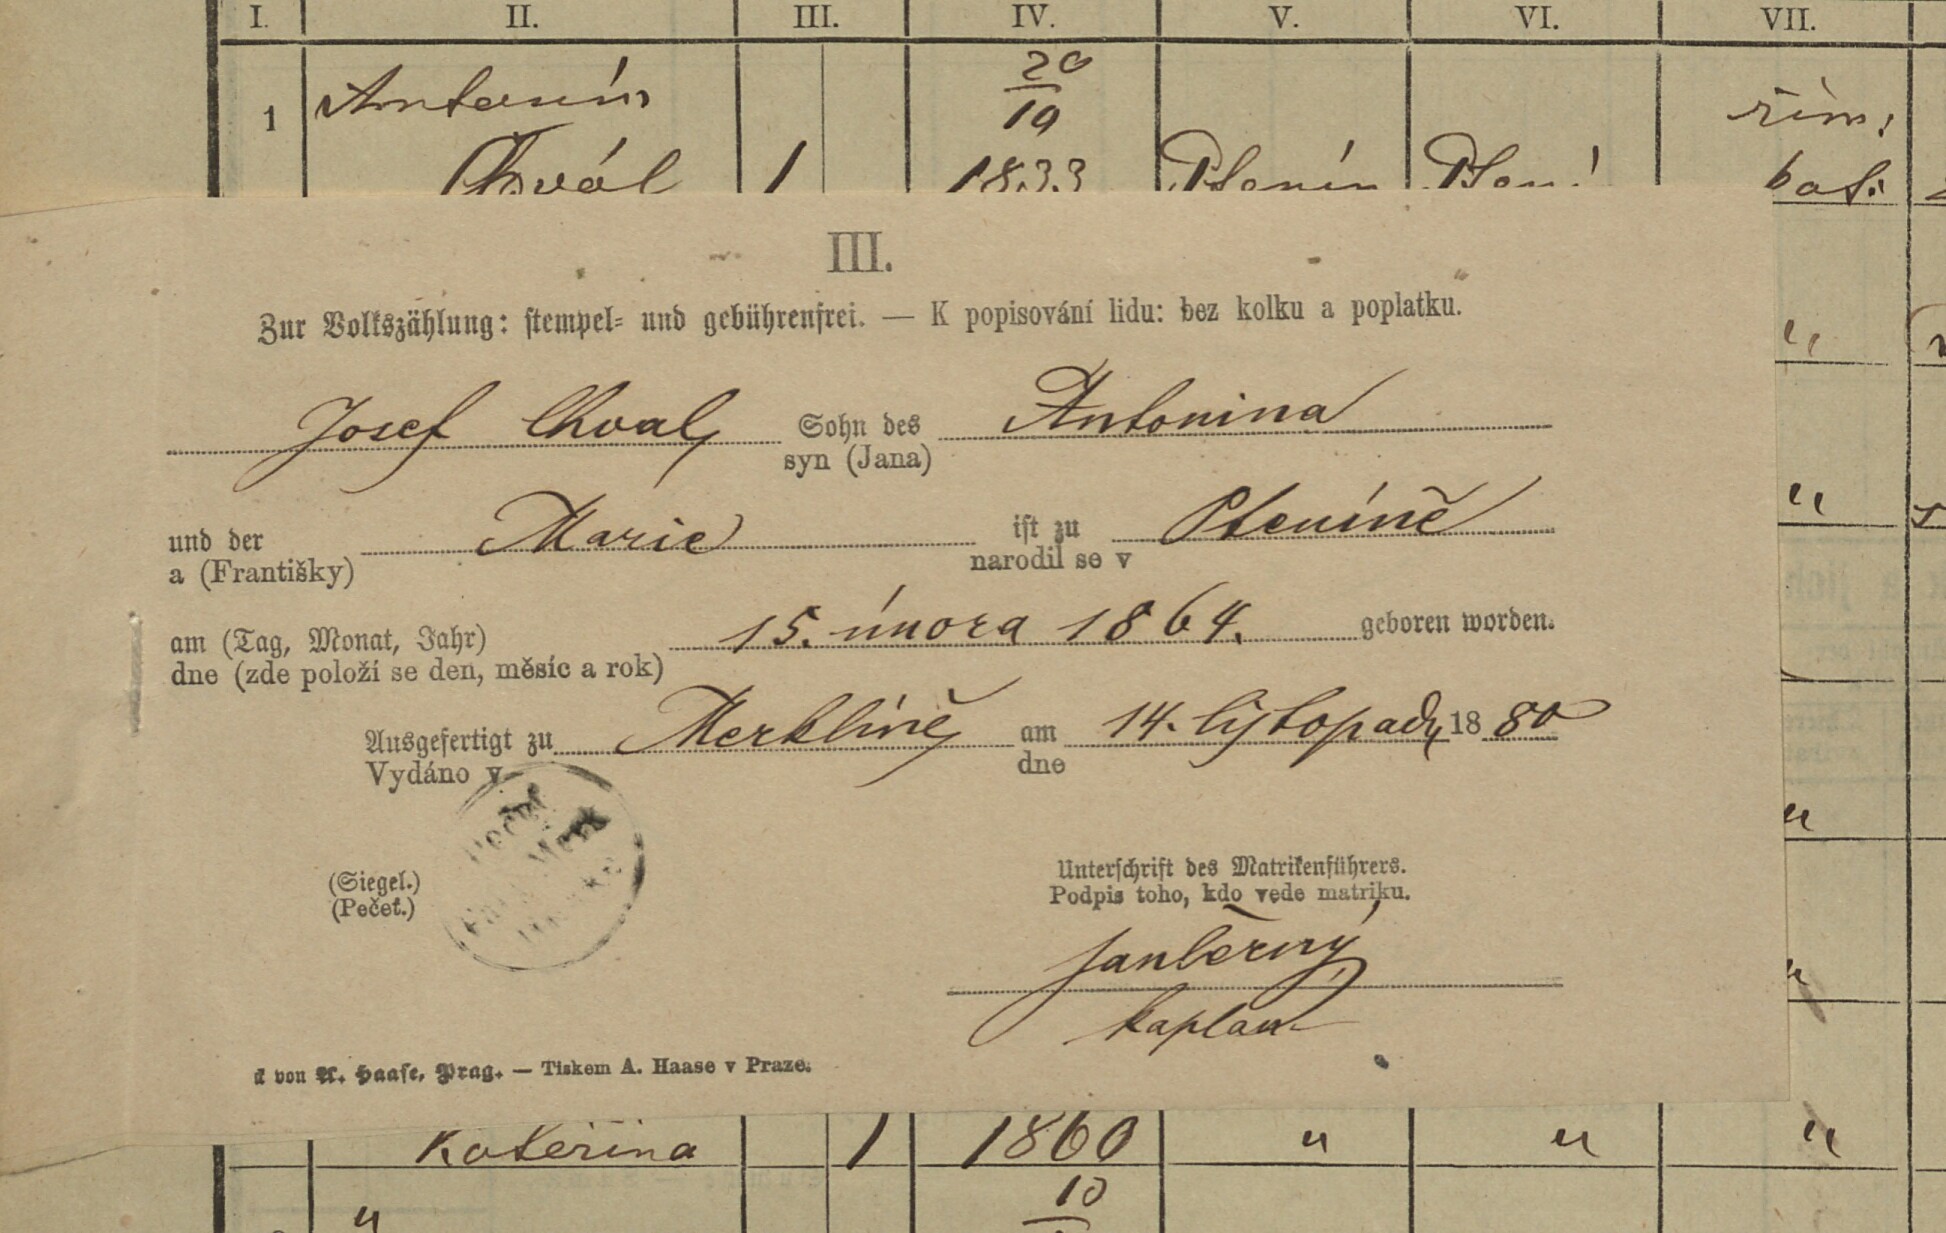 I. II. III. IV. V. VI. VII.
1 Antonín 20 řím:
19
Chvál 1 1833 Ptenín Pten! kat:
III.
Zur Volkszählung: stempel= und gebührenfrei. — K popisování lidu: bez kolku a poplatku.
Josef Chval Sohn des Antonina
syn (Jana)
und der Marie ist zu Pteníně
a (Františky) narodil se v
am (Tag, Monat, Jahr) 15. února 1864. geboren worden.
dne (zde položí se den, měsíc a rok)
Ausgefertigt zu Merklíně am 14. listopadu 1880
Vydáno v dne
(Siegel.) Unterschrift des Matrikenführers.
(Pečeť.) Podpis toho, kdo vede matriku.
Jan Černý
kaplan
von A. Haase, Prag. — Tiskem A. Haase v Praze.
Kateřina 1 1860 " " "
" 10